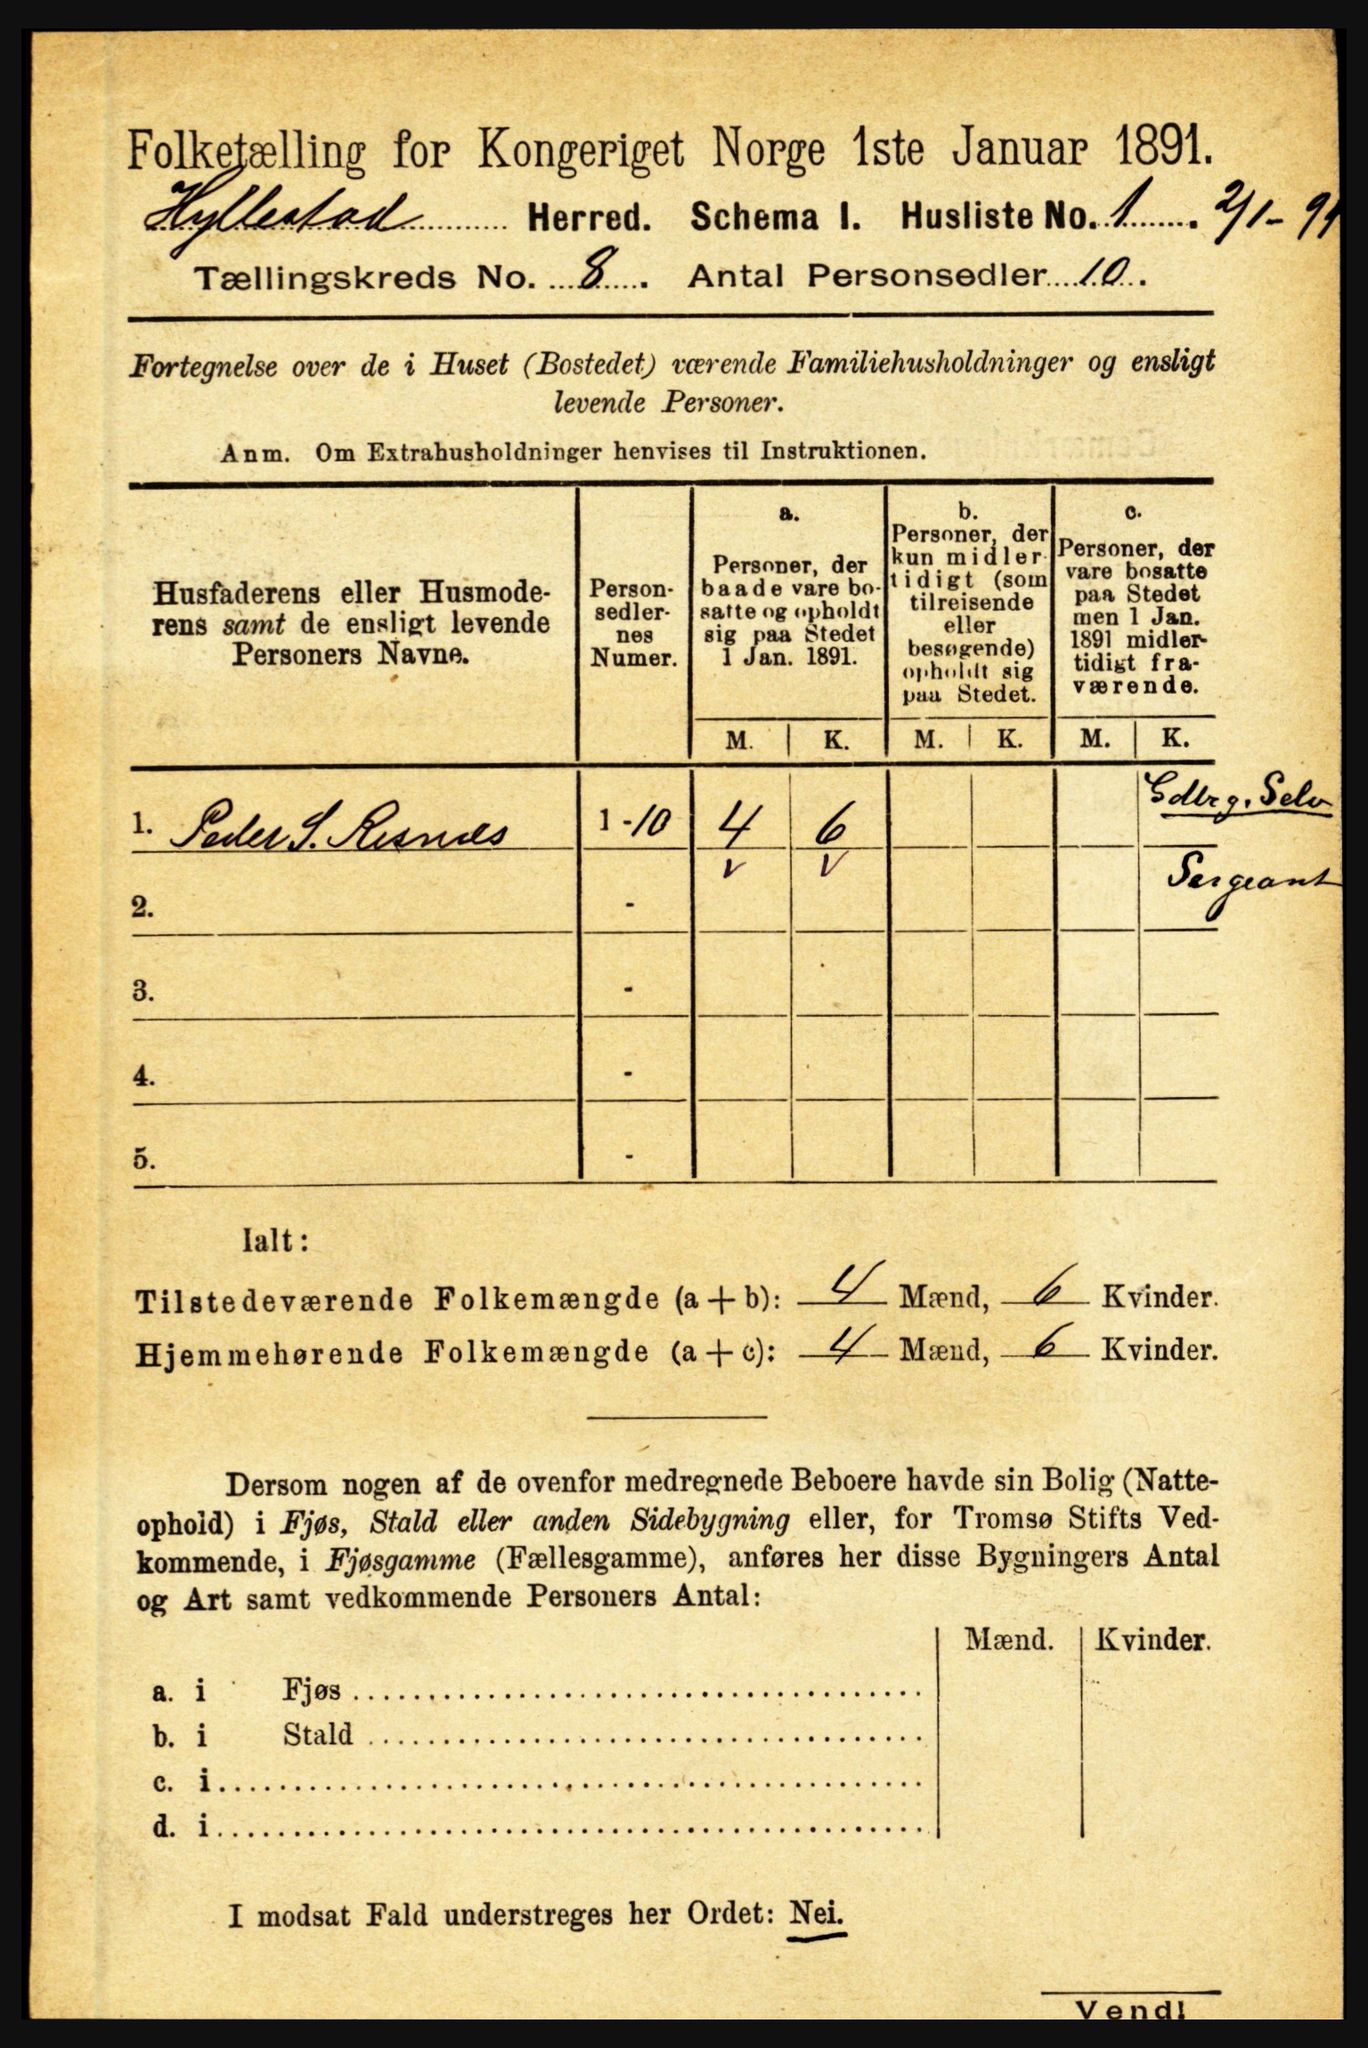 Folketælling for Kongeriget Norge 1ste Januar 1891.
Hyllestad Herred. Schema I. Husliste No. 1. 2/1-91
Tællingskreds No. 8. Antal Personsedler 10.
Fortegnelse over de i Huset (Bostedet) værende Familiehusholdninger og ensligt
levende Personer.
Anm. Om Extrahusholdninger henvises til Instruktionen.
Husfaderens eller Husmode-
rens samt de ensligt levende
Personers Navne.
Person-
sedler-
nes
Numer.
a.
Personer, der
baade vare bo-
satte og opholdt
sig paa Stedet
1 Jan. 1891.
b.
Personer, der
kun midler-
tidigt (som
tilreisende
eller
besøgende)
opholdt sig
paa Stedet.
c.
Personer, der
vare bosatte
paa Stedet
men 1 Jan.
1891 midler-
tidigt fra-
værende.
M. K. M. K. M. K.
1. Peder S. Risnæs 1-10 4 6
Selv
v v Sergeant
2. -
3. -
4. -
5. -
Ialt:
Tilstedeværende Folkemængde (a + b): 4 Mænd, 6 Kvinder.
Hjemmehørende Folkemængde (a + c): 4 Mænd, 6 Kvinder.
Dersom nogen af de ovenfor medregnede Beboere havde sin Bolig (Natte-
ophold) i Fjøs, Stald eller anden Sidebygning eller, for Tromsø Stifts Ved-
kommende, i Fjøsgamme (Fællesgamme), anføres her disse Bygningers Antal
og Art samt vedkommende Personers Antal:
Mænd. Kvinder.
a. i Fjøs
b. i Stald
c. i
d. i
I modsat Fald understreges her Ordet: Nei.
Vend!